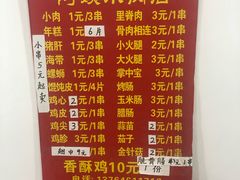 小肉 1元/3串 里脊肉 3元/1串
年糕 1元/6片 骨肉相连3元/1串
猪肝 1元/3串 小火腿 2元/1串
海带 1元/3串 大火腿 2元/1串
螺蛳 1元/3串 掌中宝 3元/1串
馄饨皮1元/3串 烤肠 3元/1串
鸡心 2元/1串 玉米肠 3元/1串
鸡皮 2元/1串 脆骨肠 3元/1串
鸡尖 3元/1串 蒜苗 2元/1串
鸡胗 3元/1串 茄子 2元/1串
金针菇 2元/1串
香酥鸡10元
1份
小串5元起卖